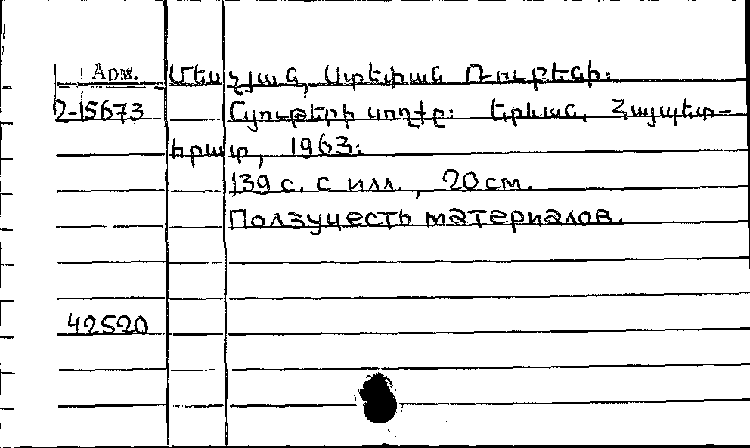 Арм. Մեսչյան, Ստեփան Ռուբենի։
2-15673 Նյութերի սողքը։ Երևան, Հայպետ-
հրատ, 1963։
139 с. с илл., 20 см.
Ползучесть материалов.
42520